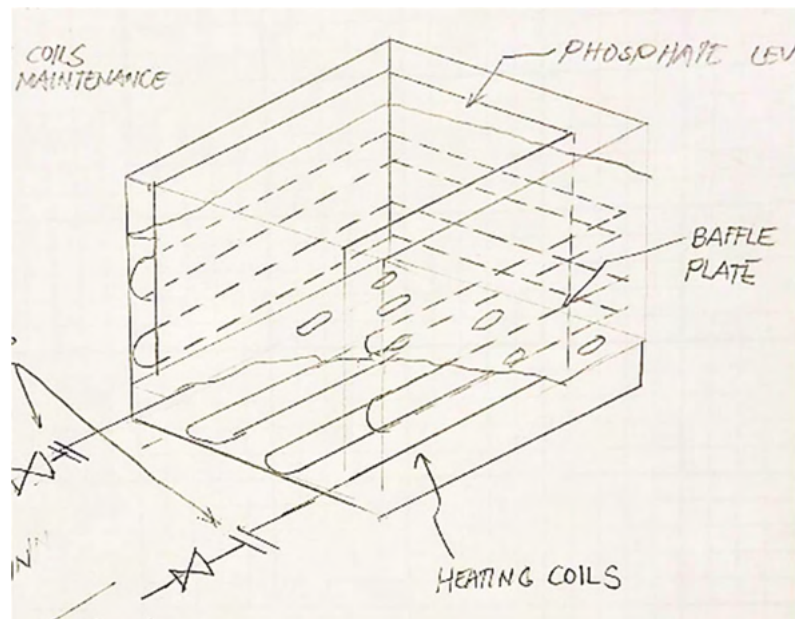 COILS
MAINTENANCE
PHOSPHATE LEV
BAFFLE
PLATE
HEATING COILS